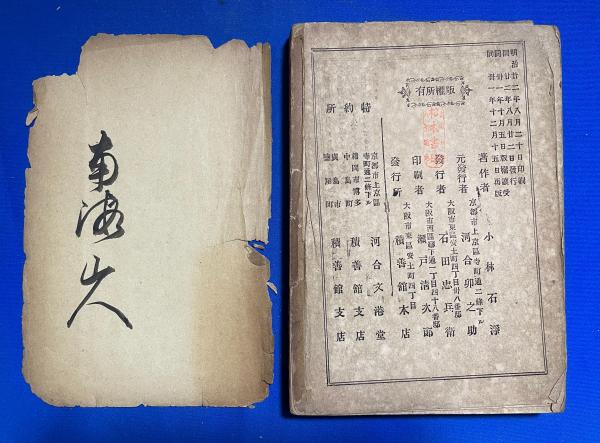 南海山人
版權所有
明治廿二年八月二十日印刷
同廿二年八月廿二日發行
同廿一年十月五日版權讓受
同卅一年十二月十五日再版
著作者 小林石渓
京都市上京區寺町通二條下ル
元發行者 河合卯之助
大阪市東區安土町四丁目卅八番邸
發行者 石田忠兵衛
大阪市西區鞆下通一丁目四十八番邸
印刷者 瀬戸清次郎
大阪市東區安土町四丁目
發行所 積善館本店
特約所
京都市上京區寺町通二條下ル 河合文港堂
福岡市博多中島町 積善館支店
廣島市鹽屋町 積善館支店